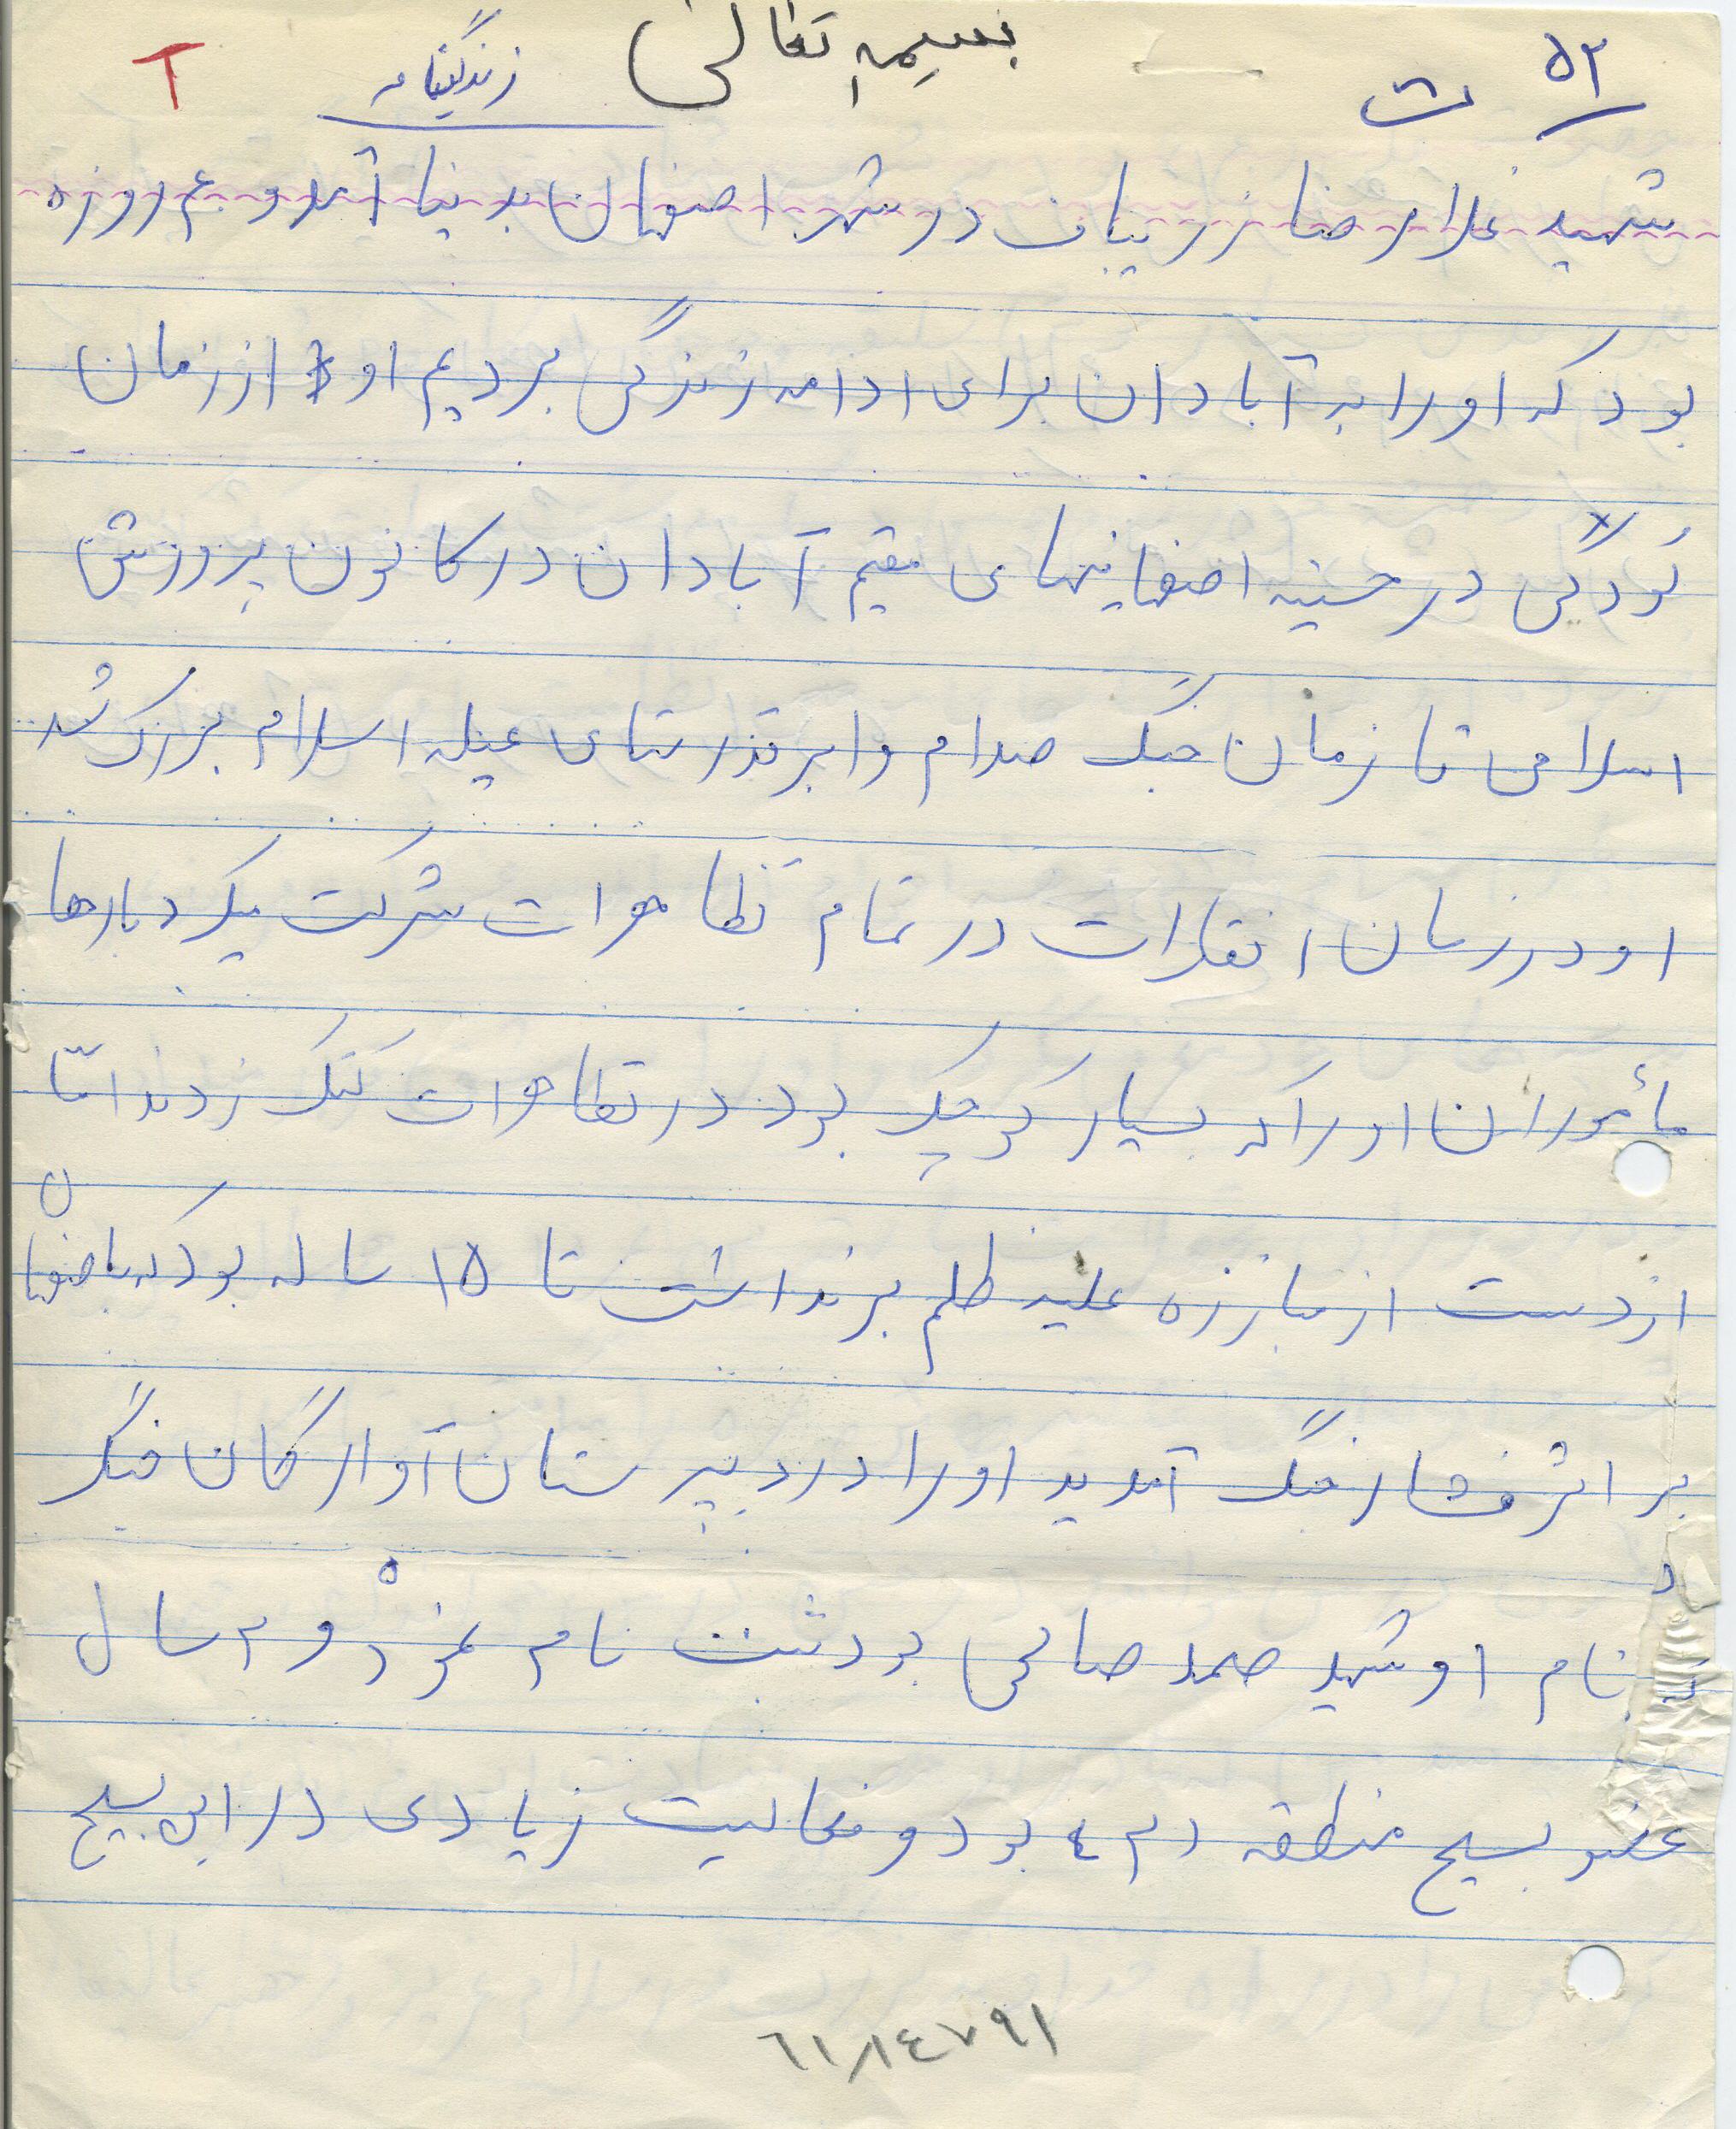 بسمه تعالی
زندگینامه
۵۲ ت
شهید غلامرضا زریباف در شهر اصفهان بدنیا آمد و ۴۰ روزه
بود که او را به آبادان برای ادامه زندگی بردیم او از زمان
کودکی در حسینیه اصفهانیهای مقیم آبادان در کانون پرورش
اسلامی تا زمان جنگ صدام و ابرقدرتهای علیه اسلام بزرگ شد
او در زمان انقلاب در تمام تظاهرات شرکت میکرد بارها
مأموران او را که بسیار کوچک بود در تظاهرات کتک زدند امّا
از دست از مبارزه علیه ظلم برنداشت تا ۱۵ ساله بود که باصفهان
بر اثر فشار جنگ آمدید او را در دبیرستان آوارگان جنگ
که بنام او شهید صمد صالحی بود ثبت نام نمود و ۲ سال
عضو بسیج منطقه ۴ بود و فعالیت زیادی در این بسیج
٦١٨١٤٧٩١